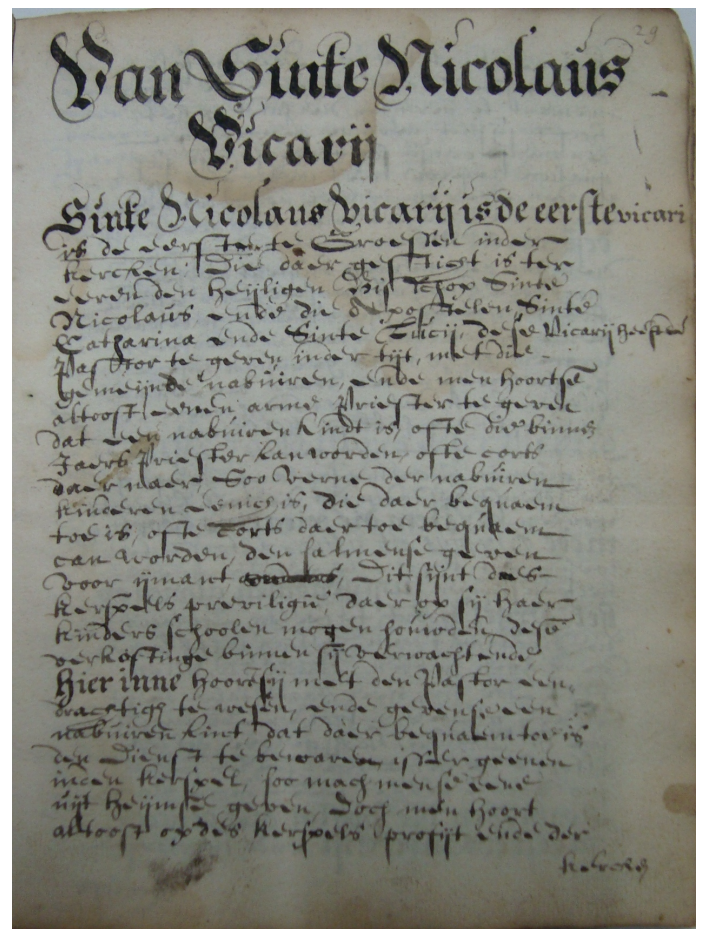 29
Van Sinte Nicolaus
Vicarij
Sinte Nicolaus vicarij is de eerste vicari
is de eerste te Groessen inder
Kercken, Die daer gesticht is ter
eeren den Heijligen Bisschop Sinte
Nicolaus ende die Apostelen Sinte
Catharina ende Sinte Lucij, dese Vicarij heeft een
Pastor te geven inder tijt, met die
gemeijnde nabuiren, ende men hoortse
altoost eenen arme Priester te geven
dat een nabuiren kindt is, ofte die binnen
Jaers Priester kan worden, ofte corts
daer naer, Soo verne der nabuiren
kinderen eenich is, die daer bequaem
toe is, ofte Corts daer toe bequaem
can worden, den salmense geven
voor ijmant, Dit sijnt des
Kerspels previligie, daer op sij haer
kinders schoolen mogen houwden, dese
verkostinge binnen sij verwachtende
Hier inne hooren sij met den Pastor een
drachtigh te wesen, ende geven se een
nabuiren kint, dat daer bequaem toe is
den Dienst te bewaren, isser geenen
inden Kerspel, soo mach mense eene
uijt heijmse geven, Doch men hoort
altoost op des Kerspels profijt ende der
kercken